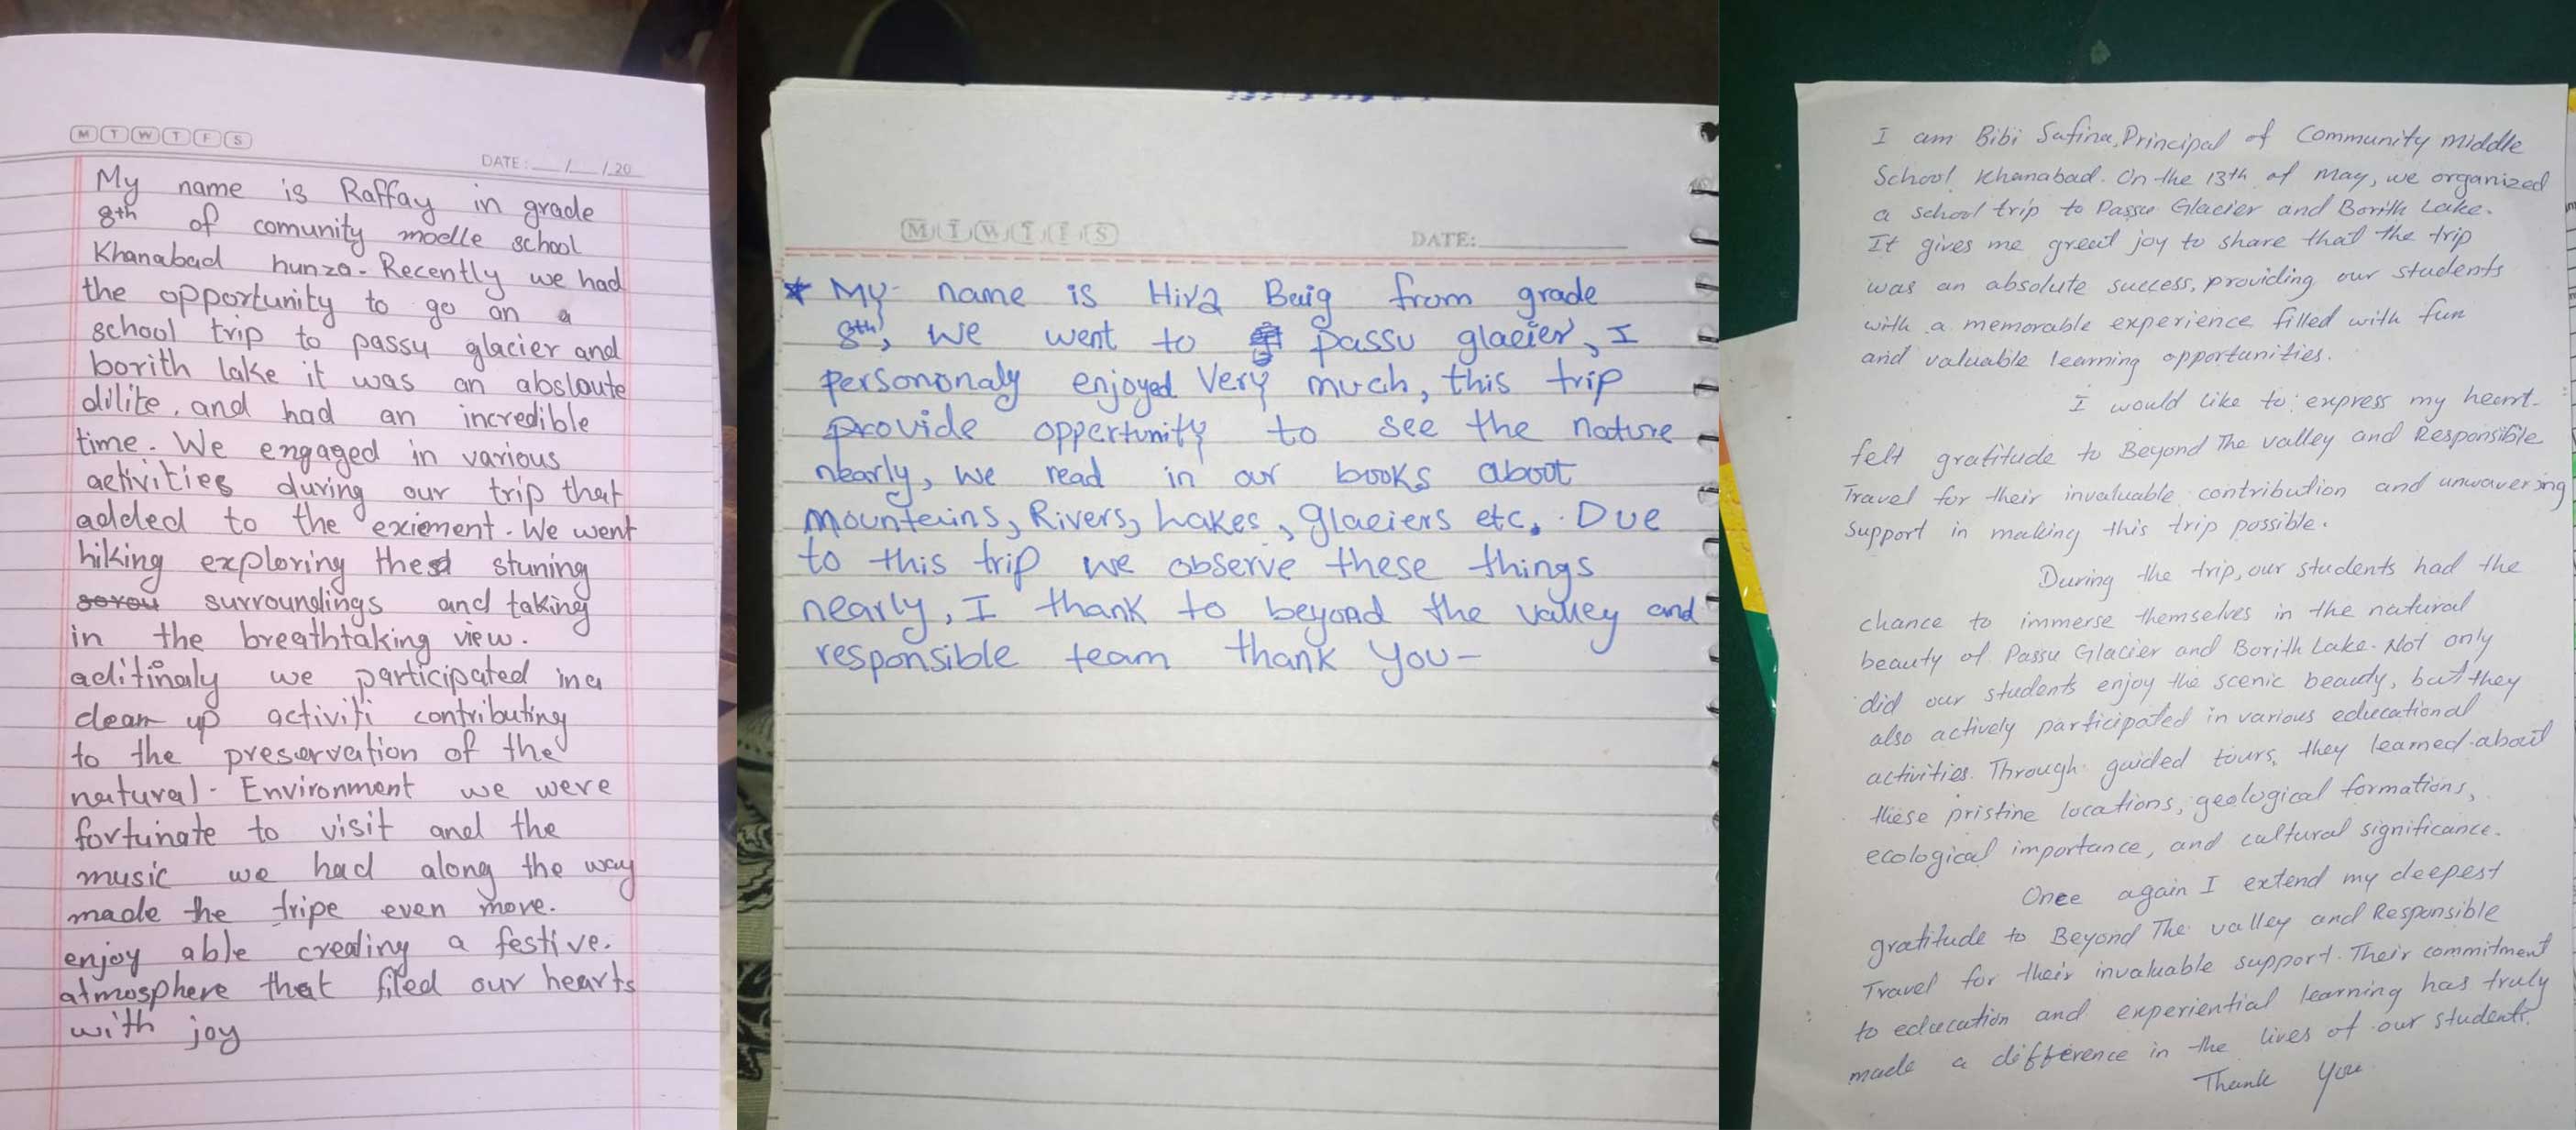 M T W T F S
DATE: __/__/20
My name is Raffay in grade
8th of comunity moelle school
Khanabad hunza. Recently we had
the opportunity to go an a
school trip to passu glacier and
borith lake it was an absloute
dilite. and had an incredible
time. We engaged in various
activities during our trip that
added to the exiement. We went
hiking exploring the stuning
surroundings and taking
in the breathtaking view.
aditinaly we participated in a
clean up activiti contributing
to the preservation of the
natural. Environment we were
fortunate to visit and the
music we had along the way
made the tripe even more.
enjoy able creating a festive.
atmosphere that filed our hearts
with joy
M T W T F S
DATE:
* My name is Hira Baig from grade
8th, we went to passu glacier, I
persononaly enjoyed very much, this trip
provide oppertunity to see the nature
nearly, we read in our books about
mountains, Rivers, Lakes, glaciers etc. Due
to this trip we observe these things
nearly, I thank to beyond the valley and
responsible team thank you-
I am Bibi Safina, Principal of Community Middle
School Khanabad. On the 13th of May, we organized
a school trip to Passu Glacier and Borith Lake.
It gives me great joy to share that the trip
was an absolute success, providing our students
with a memorable experience filled with fun
and valuable learning opportunities.
I would like to express my heart-
felt gratitude to Beyond The valley and Responsible
Travel for their invaluable contribution and unwavering
support in making this trip possible.
During the trip, our students had the
chance to immerse themselves in the natural
beauty of Passu Glacier and Borith Lake. Not only
did our students enjoy the scenic beauty, but they
also actively participated in various educational
activities. Through guided tours, they learned about
these pristine locations, geological formations,
ecological importance, and cultural significance.
Once again I extend my deepest
gratitude to Beyond The valley and Responsible
Travel for their invaluable support. Their commitment
to education and experiential learning has truly
made a difference in the lives of our students.
Thank You